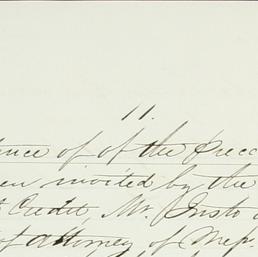 11.
of of the
invited by the
Credit, Mr. Justo
of attorney of Mess.